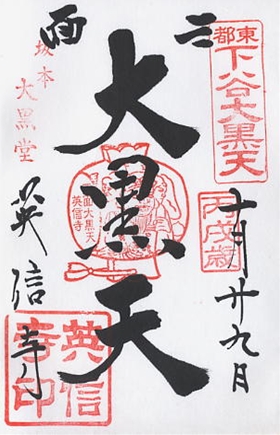 東都
下谷大黒天
丙戌歳
十月廿九日
三面
大黒天
三面大黒天
英信寺
坂本
大黒堂
英信寺
英信寺印